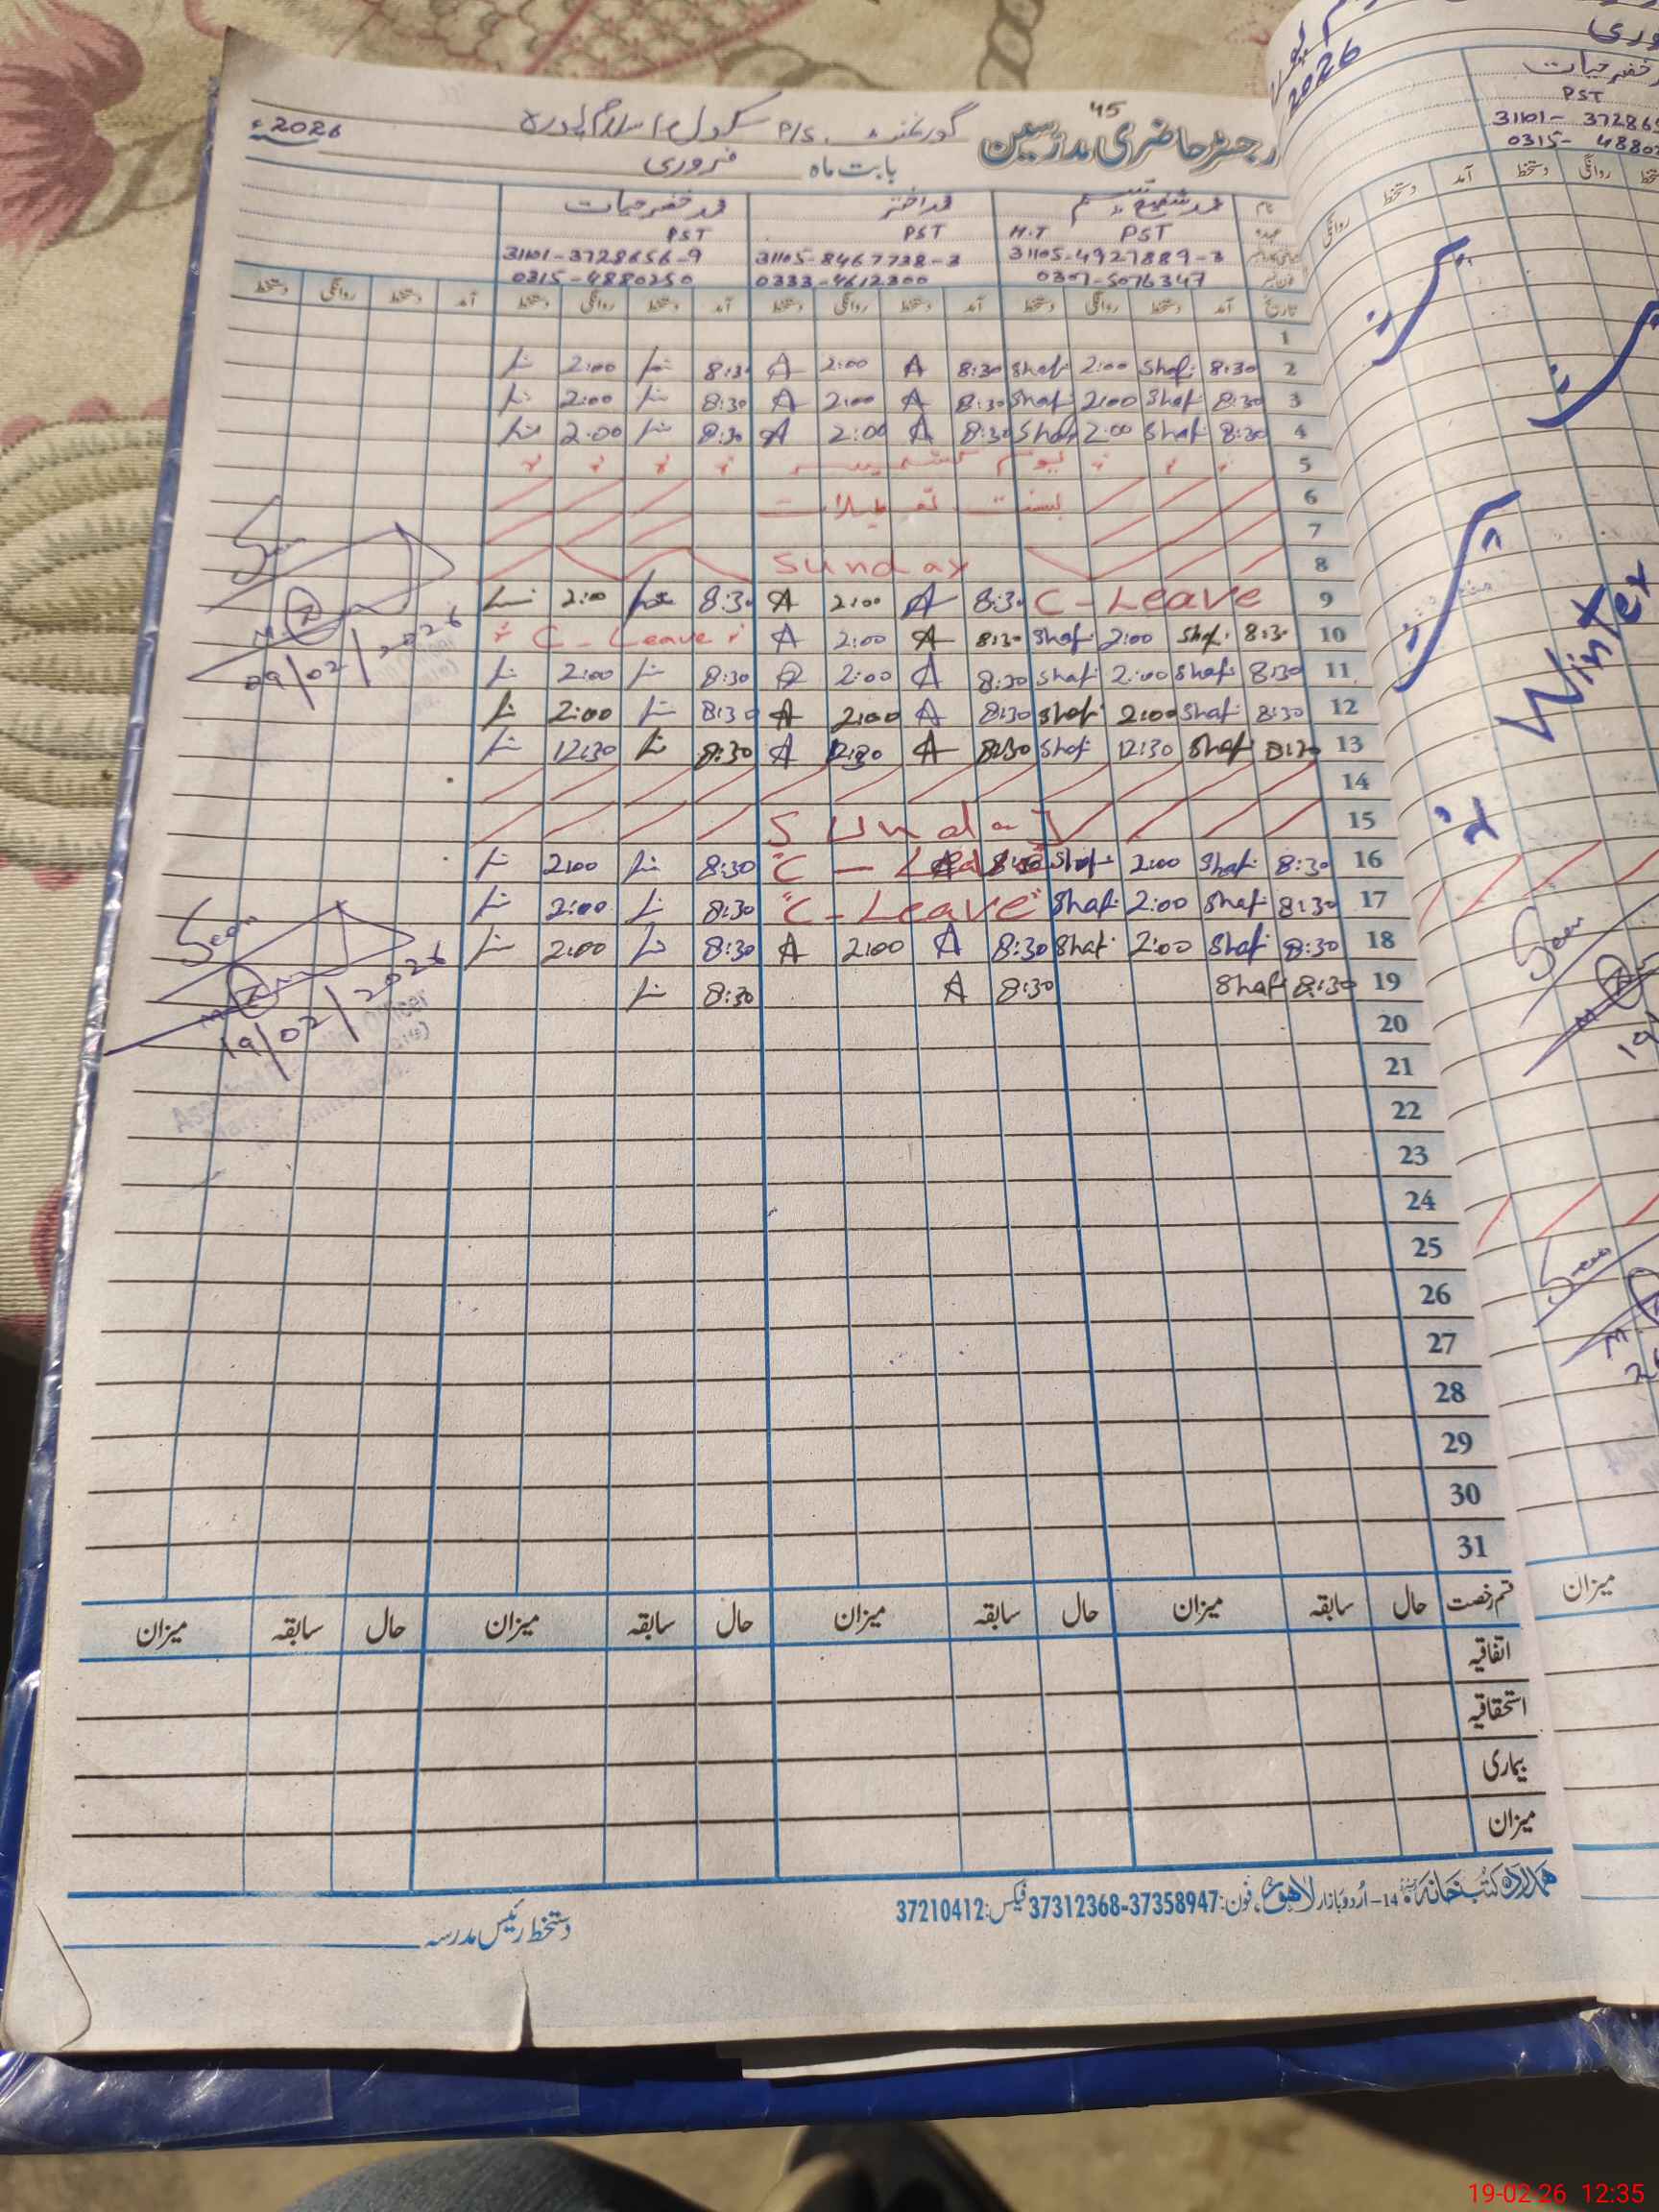 رجسٹر حاضری مدرسین 45 گورنمنٹ P/S سکول اسلام پورہ 2026ء
بابت ماہ فروری
نام محمد شفیع محمد اختر محمد خضر حیات
عہدہ PST H.T PST PST
31105-4927889-3 31105-8467738-3 31101-3728656-9
0307-5076347 0333-4612300 0315-4880250
تاریخ آمد دستخط روانگی دستخط آمد دستخط روانگی دستخط آمد دستخط روانگی دستخط آمد دستخط روانگی دستخط
1
2 8:30 Shaf: 2:00 Shaf: 8:30 A 2:00 A 8:30 2:00
3 8:30 Shaf: 2:00 Shaf: 8:30 A 2:00 A 8:30 2:00
4 8:30 Shaf: 2:00 Shaf: 8:30 A 2:00 A 8:30 2:00
5 یوم کشمیر
6 بسنت تعطیلات
7
8 Sunday
9 C-Leave 8:30 A 2:00 A 8:30 2:00
10 8:30 Shaf: 2:00 Shaf: 8:30 A 2:00 A C-Leave
11 8:30 Shaf: 2:00 Shaf: 8:30 A 2:00 A 8:30 2:00
12 8:30 Shaf: 2:00 Shaf: 8:30 A 2:00 A 8:30 2:00
13 8:30 Shaf: 12:30 Shaf: 8:30 A 12:30 A 8:30 12:30
14
15 Sunday
16 8:30 Shaf: 2:00 Shaf: C-Leave 8:30 2:00
17 8:30 Shaf: 2:00 Shaf: "C-Leave" 8:30 2:00
18 8:30 Shaf: 2:00 Shaf: 8:30 A 2:00 A 8:30 2:00
19 8:30 Shaf: 8:30 A 8:30
20
21
22
23
24
25
26
27
28
29
30
31
Seen
09/02/2026
Seen
19/02/2026
قسم رخصت حال سابقہ میزان حال سابقہ میزان حال سابقہ میزان حال سابقہ میزان
اتفاقیہ
استحقاقیہ
بیماری
میزان
ہمدرد کتب خانہ 14-اُردو بازار لاہور، فون: 37312368-37358947 فیکس: 37210412
دستخط رئیس مدرسہ
2026
خضر حیات
PST
31101-
0315-
آمد دستخط روانگی دستخط
Winter
Seen
Seen
میزان
19-02-26 12:35